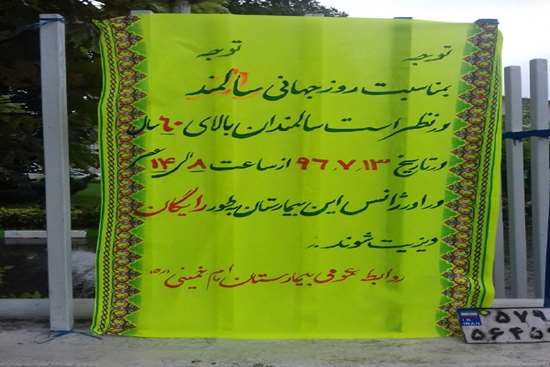 توجه توجه
بمناسبت روز جهانی سالمند
در نظر است سالمندان بالای ۶۰ سال
در تاریخ ۹۶٫۷٫۱۳ از ساعت ۸ الی ۱۴ عصر
در اورژانس این بیمارستان بطور رایگان
ویزیت شوند.
روابط عمومی بیمارستان امام خمینی (ره)
I.R. IRAN